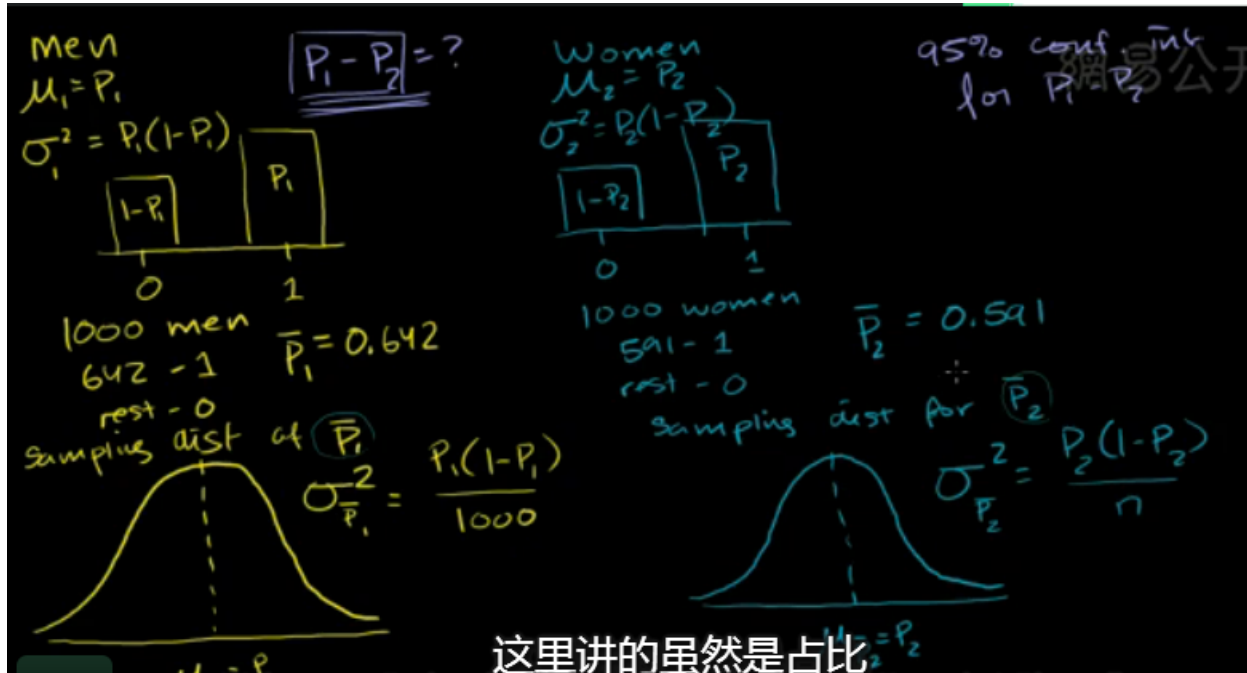 men
μ₁=P₁
σ₁² = P₁(1-P₁)
1-P₁
P₁
0 1
1000 men
642 - 1
rest - 0
P̄₁ = 0.642
sampling dist of P̄₁
σ²_P̄₁ = P₁(1-P₁) / 1000
P₁-P₂ = ?
Women
μ₂ = P₂
σ₂² = P₂(1-P₂)
1-P₂
P₂
0 1
1000 women
591 - 1
rest - 0
P̄₂ = 0.591
sampling dist for P̄₂
σ²_P̄₂ = P₂(1-P₂) / n
= P₂
95% conf. int
for P₁-P₂
網易公开
这里讲的虽然是占比